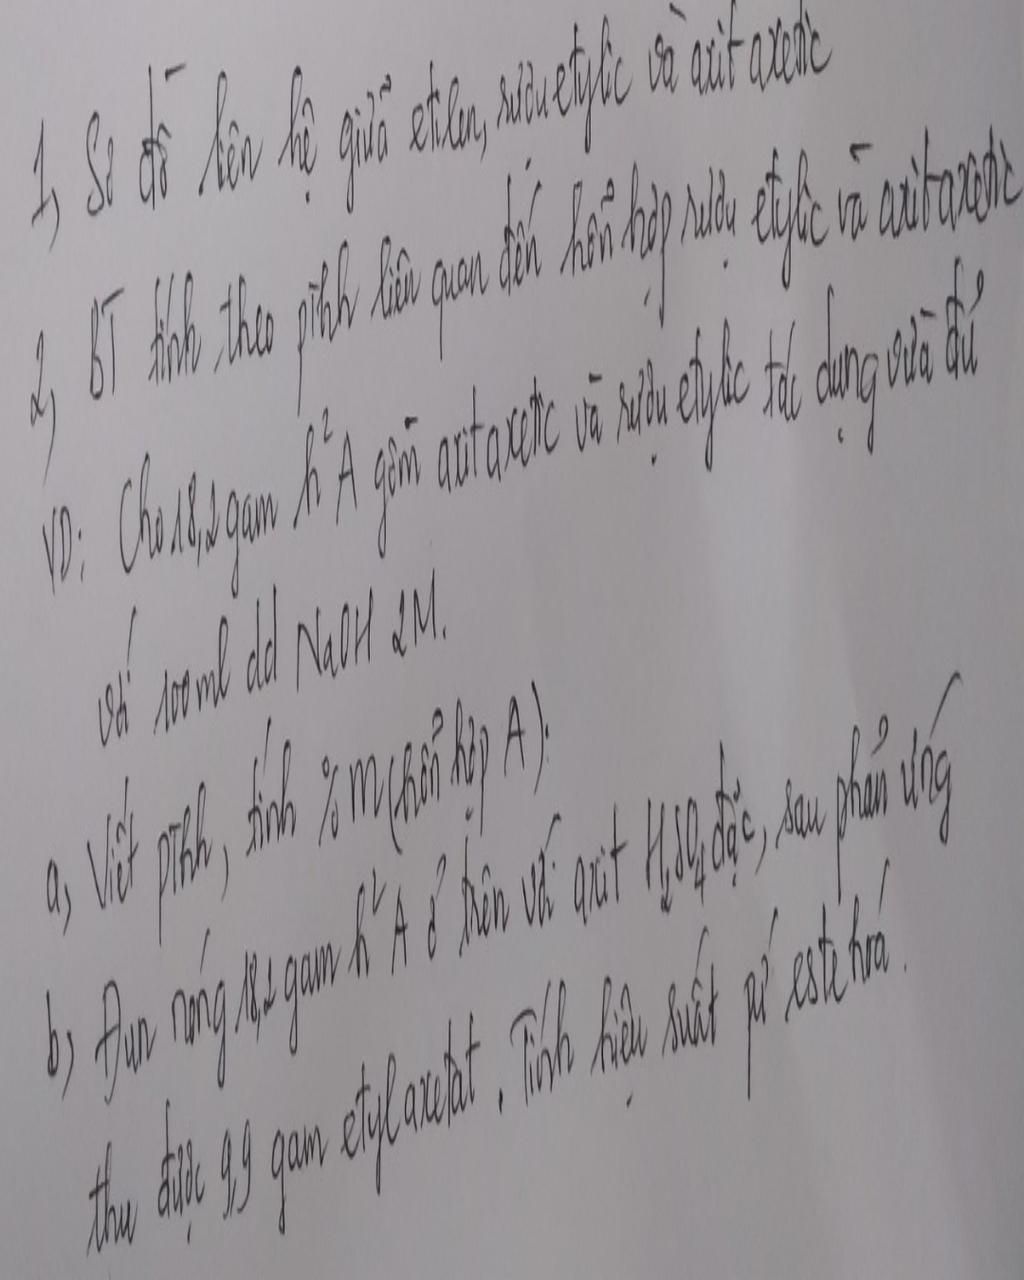 1, Sơ đồ liên hệ giữa etilen, rượu etylic và axit axetic
2, BT tính theo ptrh liên quan đến hỗn hợp rượu etylic và axit axetic
VD: Cho 18,2 gam h² A gồm axit axetic và rượu etylic tác dụng vừa đủ
với 100ml dd NaOH 2M.
a, Viết ptrh, tính %m (hỗn hợp A).
b, Đun nóng 18,2 gam h² A ở trên với axit H₂SO₄ đặc, sau phản ứng
thu được 9,9 gam etyl axetat. Tính hiệu suất pứ este hoá.